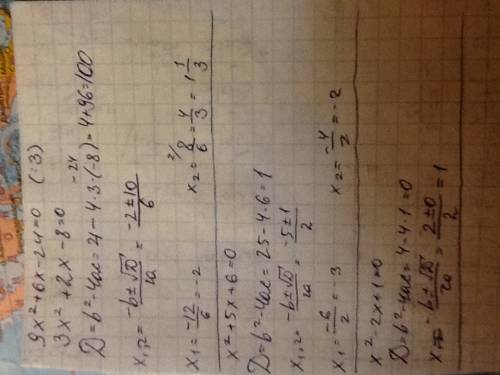 9x²+6x-24=0 (:3)
3x²+2x-8=0
-24
D=b²-4ac=4-4·3·(-8)=4+96=100
x₁,₂=(-b±√D)/2a=(-2±10)/6
x₁=-12/6=-2 x₂=8/6=4/3=1 1/3
x²+5x+6=0
D=b²-4ac=25-4·6=1
x₁,₂=(-b±√D)/2a=(-5±1)/2
x₁=-6/2=-3 x₂=-4/2=-2
x²-2x+1=0
D=b²-4ac=4-4·1=0
x=(-b±√D)/2a=(2±0)/2=1